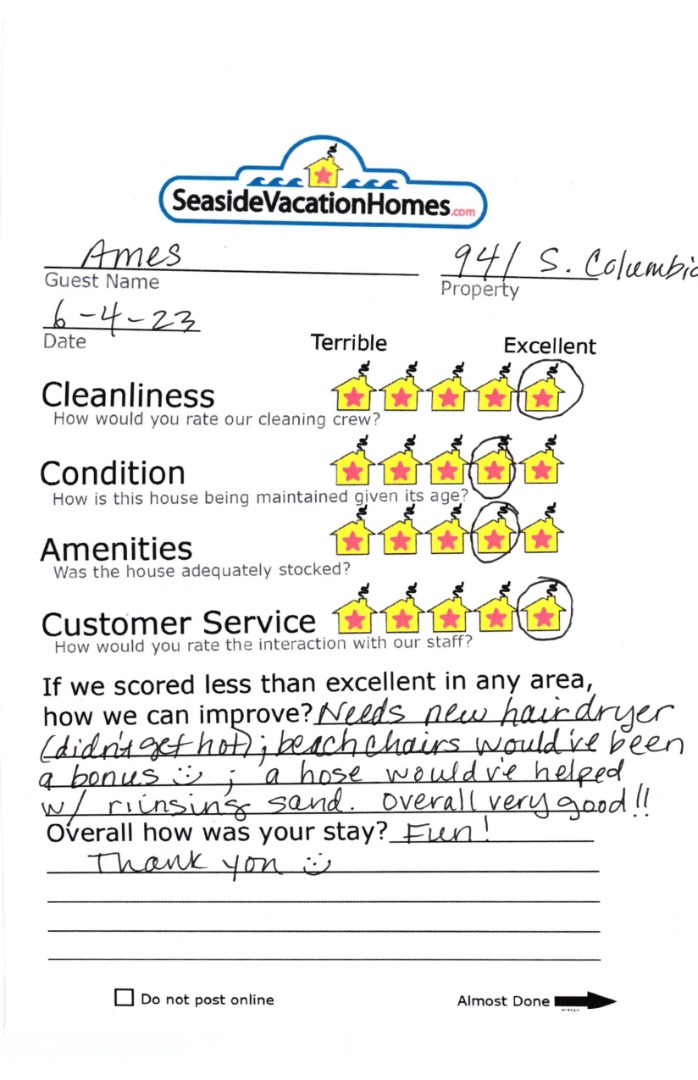 SeasideVacationHomes.com
Ames 941 S. Columbia
Guest Name Property
6-4-23
Date
Terrible Excellent
Cleanliness
How would you rate our cleaning crew?
Condition
How is this house being maintained given its age?
Amenities
Was the house adequately stocked?
Customer Service
How would you rate the interaction with our staff?
If we scored less than excellent in any area,
how we can improve? Needs new hairdryer
(didn't get hot); beach chairs would've been
a bonus :) ; a hose would've helped
w/ riinsing sand. Overall very good!!
Overall how was your stay? Fun!
Thank you :)
Do not post online Almost Done